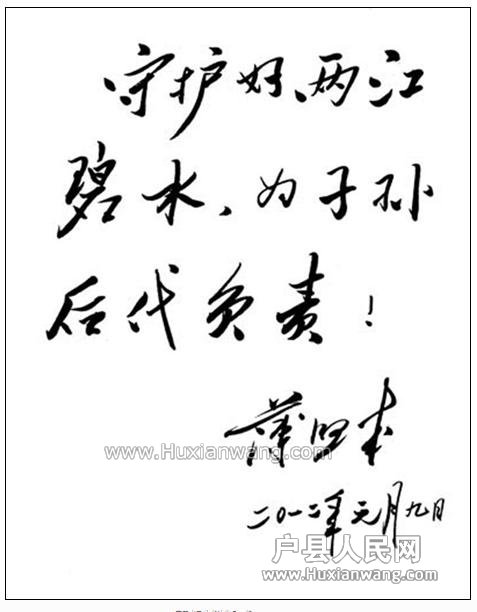 守护好两江
碧水，为子孙
后代负责！
二〇一二年元月九日
www.Huxianwang.com
户县人民网
www.Huxianwang.com